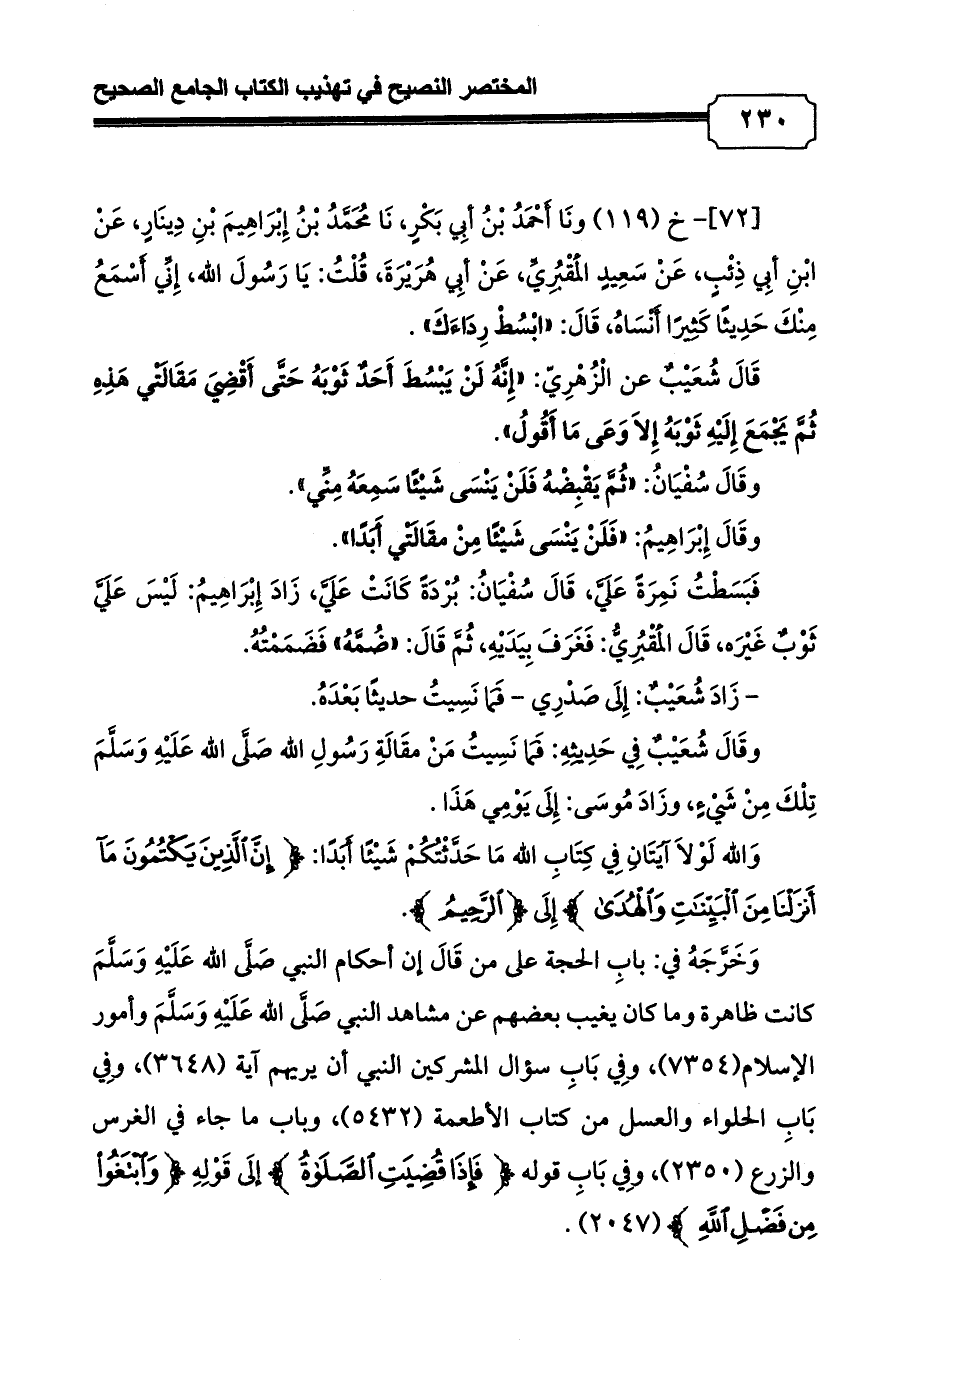 المختصر النصيح في تهذيب الكتاب الجامع الصحيح
٢٣٠
[٧٢]- خ (١١٩) ونَا أَحْمَدُ بْنُ أبِي بَكْرٍ، نَا مُحَمَّدُ بْنُ إِبْرَاهِيمَ بْنِ دِينَارٍ، عَنْ
ابْنِ أبِي ذِئْبٍ، عَنْ سَعِيدٍ الْمَقْبُرِيِّ، عَنْ أبِي هُرَيْرَةَ، قُلْتُ: يَا رَسُولَ الله، إِنِّي أَسْمَعُ
مِنْكَ حَدِيثًا كَثِيرًا أَنْسَاهُ، قَالَ: «ابْسُطْ رِدَاءَكَ» .
قَالَ شُعَيْبٌ عن الْزُهْرِيّ: «إِنَّهُ لَنْ يَبْسُطَ أَحَدٌ ثَوْبَهُ حَتَّى أَقْضِيَ مَقَالَتِي هَذِهِ
ثُمَّ يَجْمَعَ إِلَيْهِ ثَوْبَهُ إِلاَ وَعَى مَا أَقُولُ».
وقَالَ سُفْيَانُ: «ثُمَّ يَقْبِضْهُ فَلَنْ يَنْسَى شَيْئًا سَمِعَهُ مِنِّي».
وقَالَ إِبْرَاهِيمُ: «فَلَنْ يَنْسَى شَيْئًا مِنْ مقَالَتِي أَبَدًا».
فَبَسَطْتُ نَمِرَةً عَلَيَّ، قَالَ سُفْيَانُ: بُرْدَةً كَانَتْ عَلَيَّ، زَادَ إِبْرَاهِيمُ: لَيْسَ عَلَيَّ
ثَوْبٌ غَيْرَه، قَالَ الْمَقْبُرِيُّ: فَغَرَفَ بِيَدَيْهِ، ثُمَّ قَالَ: «ضُمَّهُ» فَضَمَمْتُهُ.
- زَادَ شُعَيْبٌ: إِلَى صَدْرِي - فَمَا نَسِيتُ حديثًا بَعْدَهُ.
وقَالَ شُعَيْبٌ فِي حَدِيثِهِ: فَمَا نَسِيتُ مَنْ مقَالَةِ رَسُولِ الله صَلَّى الله عَلَيْهِ وَسَلَّمَ
تِلْكَ مِنْ شَيْءٍ، وزَادَ مُوسَى: إِلَى يَوْمِي هَذَا .
وَالله لَوْلاَ آيَتَانِ فِي كِتَابِ الله مَا حَدَّثْتُكُمْ شَيْئًا أَبَدًا: ﴿ إِنَّ ٱلَّذِينَ يَكْتُمُونَ مَآ
أَنزَلْنَا مِنَ ٱلْبَيِّنَٰتِ وَٱلْهُدَىٰ ﴾ إِلَى ﴿ ٱلرَّحِيمُ ﴾.
وَخَرَّجَهُ فِي: بابِ الحجة على من قَالَ إن أحكام النبي صَلَّى الله عَلَيْهِ وَسَلَّمَ
كانت ظاهرة وما كان يغيب بعضهم عن مشاهد النبي صَلَّى الله عَلَيْهِ وَسَلَّمَ وأمور
الإسلام(٧٣٥٤)، وفِي بَابِ سؤال المشركين النبي أن يريهم آية (٣٦٤٨)، وفِي
بَابِ الحلواء والعسل من كتاب الأطعمة (٥٤٣٢)، وباب ما جاء في الغرس
والزرع (٢٣٥٠)، وفِي بَابِ قوله ﴿ فَإِذَا قُضِيَتِ ٱلصَّلَوٰةُ ﴾ إلَى قَوْلِهِ ﴿ وَٱبْتَغُواْ
مِن فَضْلِ ٱللَّهِ ﴾ (٢٠٤٧) .